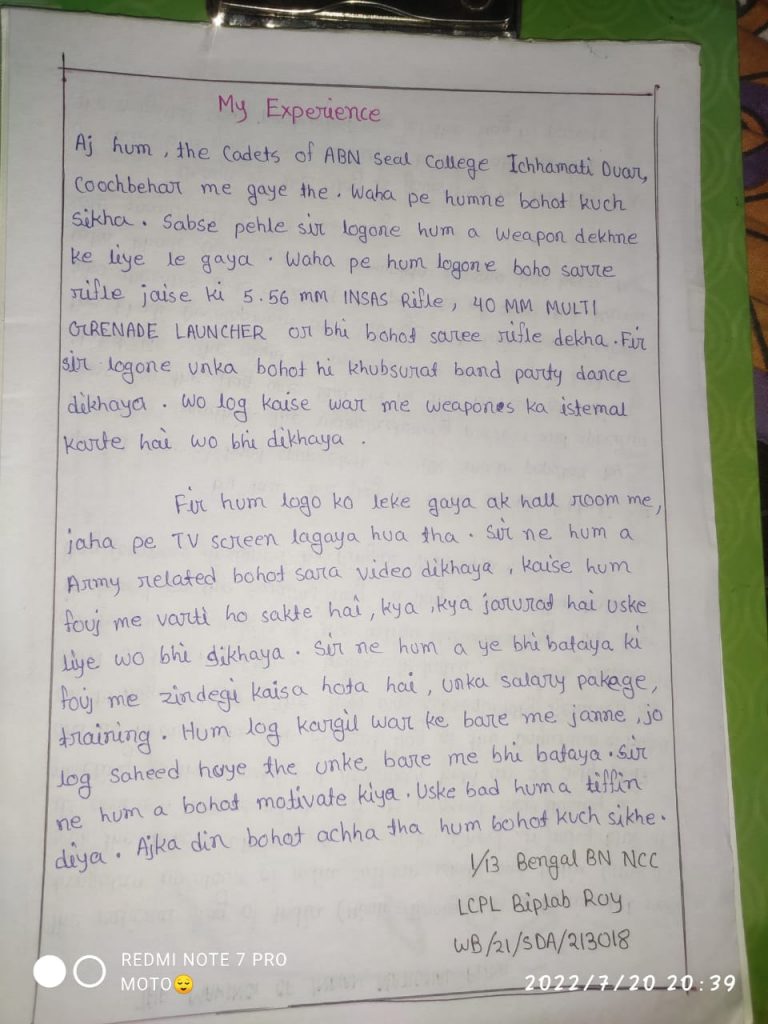 My Experience
Aj hum, the Cadets of ABN Seal College Ichhamati Duar,
Coochbehar me gaye the. Waha pe humne bohot kuch
sikha. Sabse pehle sir logone hum a weapon dekhne
ke liye le gaya. Waha pe hum logone boho sarre
rifle jaise ki 5.56 mm INSAS Rifle, 40 MM MULTI
GRENADE LAUNCHER or bhi bohot saree rifle dekha. Fir
sir logone unka bohot hi khubsurat band party dance
dikhaya. Wo log kaise war me weapones ka istemal
karte hai wo bhi dikhaya.
Fir hum logo ko leke gaya ak hall room me,
jaha pe TV screen lagaya hua tha. Sir ne hum a
Army related bohot sara video dikhaya, kaise hum
fouj me varti ho sakte hai, kya, kya jarurat hai uske
liye wo bhi dikhaya. Sir ne hum a ye bhi bataya ki
fouj me zindegi kaisa hota hai, unka salary pakage,
training. Hum log kargil war ke bare me janne, jo
log saheed huye the unke bare me bhi bataya. Sir
ne hum a bohot motivate kiya. Uske bad hum a tiffin
diya. Ajka din bohot achha tha hum bohot kuch sikhe.
1/13 Bengal BN NCC
LCPL Biplab Roy
WB/21/SDA/213018
REDMI NOTE 7 PRO
MOTO😌
2022/7/20 20:39